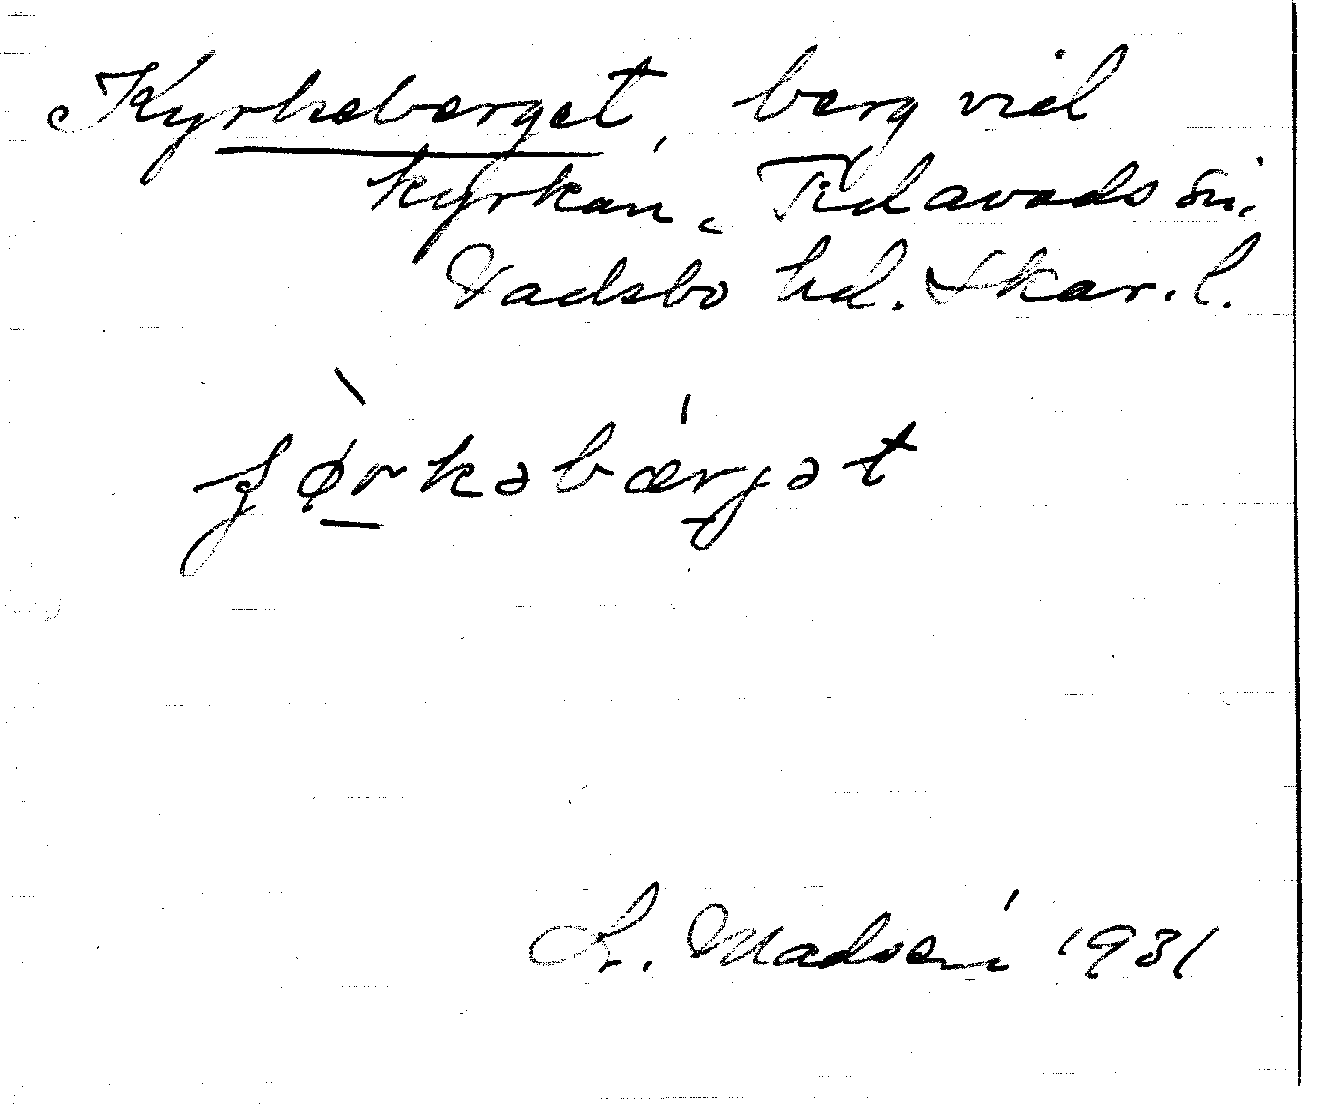 Kyrkeberget, berg vid
kyrkan. Tidavads sn.
Vadsbo hd. Skar. l.
ʃø̀rkəbǽrjət
1931